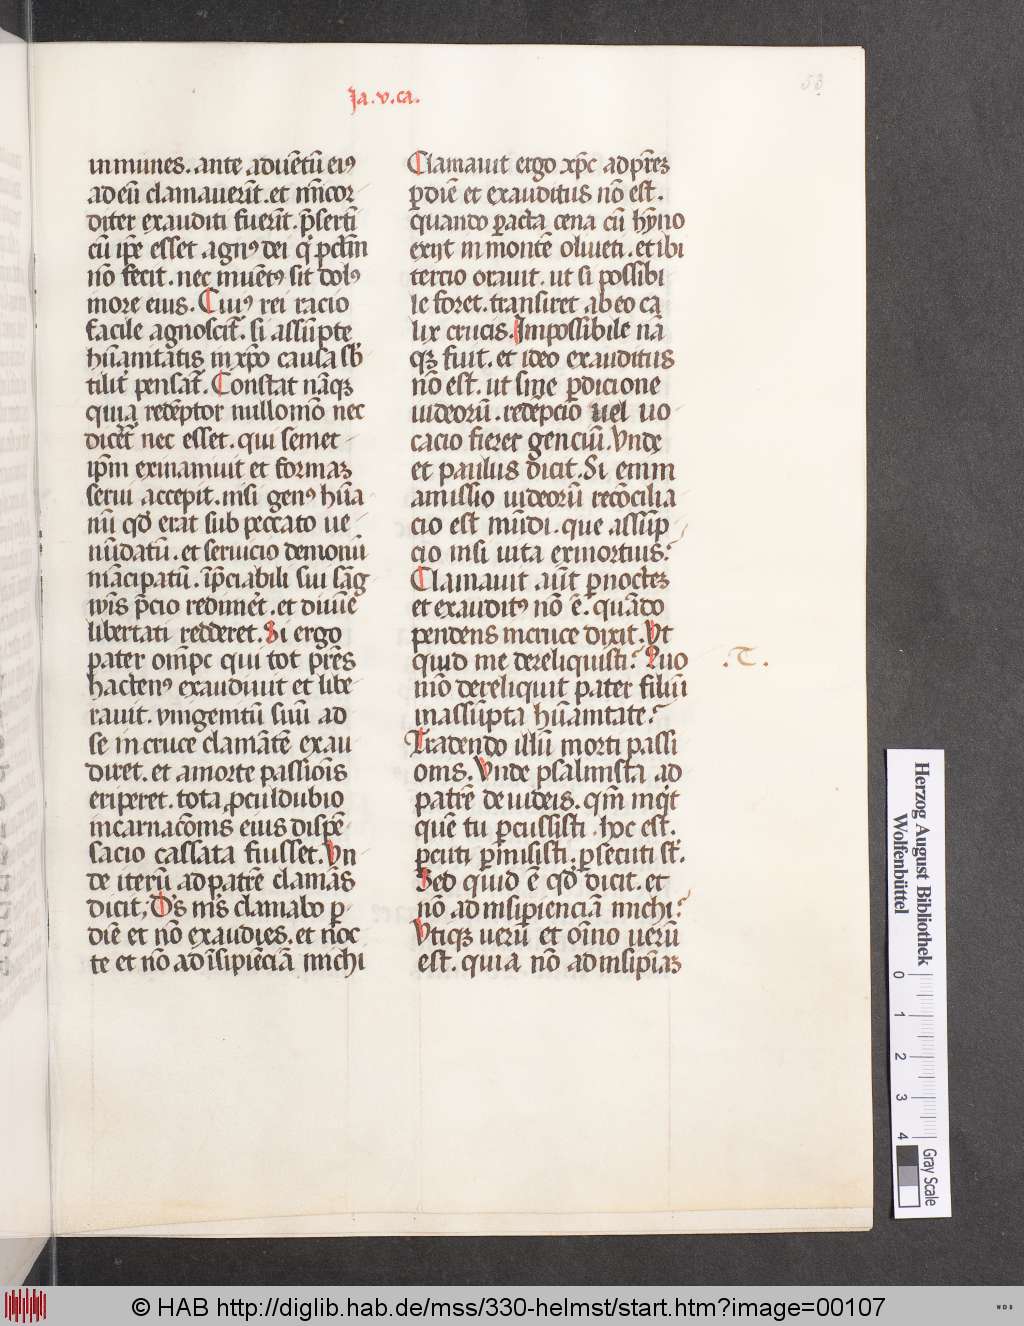 Ja.v.ca.
53
inmunes. ante aduētū eiꝰ
ad eū clamauerīt. et mīcor
diter exauditi fuerīt. p̄sertī
cū ip̄e esset agnꝰ dei q̇ pctm̄
nō fecit. nec inuētꝰ sit dolꝰ
in ore eius. Cuiꝰ rei racio
facile agnoscit᷑. si assūpte
hūanitatis in xp̄o causa sb̓
tilit᷑ pensat᷑. Constat nāqꝫ
quia redēptor nullomō nec
dicet᷑ nec esset. qui semet
ip̄m exinaniuit et formaꝫ
serui accepit. nisi genꝰ hūa
nū qd̓ erat sub peccato ue
nūdatū. et seruicio demonū
mācipatū. īp̄ciabili sui sāg
wīs p̄cio redimet᷑. et diuīe
libertati redderet. Si ergo
pater om̄pc qui tot prēs
hactenꝰ exaudiuit et libe
rauit. vnigenitū suū ad
se in cruce clamātē exau
diret. et a morte passiōis
eriperet. tota ꝓculdubio
incarnacōnis eius dispē
sacio cassata fuisset. Vn
de iterū ad patrē clamās
dicit, Ds̄ ms̄ clamabo ꝑ
diē et nō exaudies. et noc
te et nō ad īsipiēciā michi
Clamauit ergo xp̄c ad pr̄eꝫ
ꝑ diē et exauditus nō est.
quando ꝑacta cena cū hȳno
exijt in montē oliueti. et ibi
tercio orauit. ut si possibi
le foret. transiret ab eo ca
lix crucis. Impossibile nā
qꝫ fuit. et ideo exauditus
nō est. ut sine ꝑdicione
iudeorū. redēpcio uel uo
cacio fieret genciū. Vnde
et paulus dicit. Si enim
amissio iudeorū recōcilia
cio est mūdi. que assūp
cio nisi uita ex mortuis?
Clamauit aūt ꝑ nocteꝫ
et exauditꝰ nō ē. quādo
pendens in cruce dixit. Vt
quid me dereliquisti? Quo
mō dereliquit pater filiū
in assūpta hūanitate?
Tradendo illū morti passi
onis. Vnde psalmista ad
patrē de iudeis. qm̄ inq̇t
quē tu ꝑcussisti. hoc est.
ꝑcuti ꝑmisisti. ꝑsecuti st̄.
Sed quid ē qd̓ dicit. et
nō ad insipienciā michi?
Vtiqꝫ uerū et oīno uerū
est. quia nō ad insipīaꝫ
.T.
Herzog August Bibliothek
Wolfenbüttel
0 1 2 3 4
Gray Scale
© HAB http://diglib.hab.de/mss/330-helmst/start.htm?image=00107